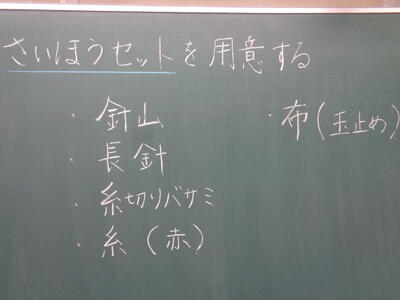 さいほうセットを用意する
・針山
・長針
・糸切りバサミ
・糸（赤）
・布（玉止め）